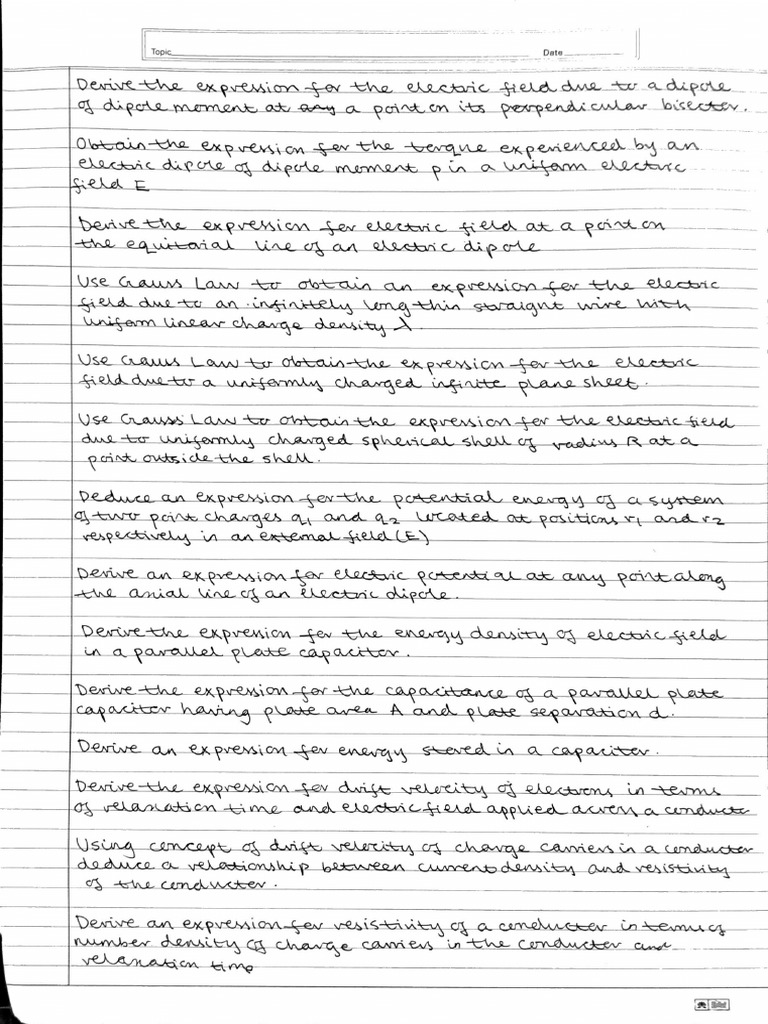 Topic Date
Derive the expression for the electric field due to a dipole
of dipole moment at any a point on its perpendicular bisector.
Obtain the expression for the torque experienced by an
electric dipole of dipole moment p in a uniform electric
field E
Derive the expression for electric field at a point on
the equitorial line of an electric dipole
Use Gauss Law to obtain an expression for the electric
field due to an infinitely long thin straight wire with
uniform linear charge density λ.
Use Gauss Law to obtain the expression for the electric
field due to a uniformly charged infinite plane sheet.
Use Gauss' Law to obtain the expression for the electric field
due to uniformly charged spherical shell of radius R at a
point outside the shell.
Deduce an expression for the potential energy of a system
of two point charges q1 and q2 located at positions r1 and r2
respectively in an external field (E)
Derive an expression for electric potential at any point along
the axial line of an electric dipole.
Derive the expression for the energy density of electric field
in a parallel plate capacitor.
Derive the expression for the capacitance of a parallel plate
capacitor having plate area A and plate separation d.
Derive an expression for energy stored in a capacitor.
Derive the expression for drift velocity of electrons in terms
of relaxation time and electric field applied across a conductor
Using concept of drift velocity of charge carriers in a conductor
deduce a relationship between current density and resistivity
of the conductor.
Derive an expression for resistivity of a conductor in terms of
number density of charge carriers in the conductor and
relaxation time